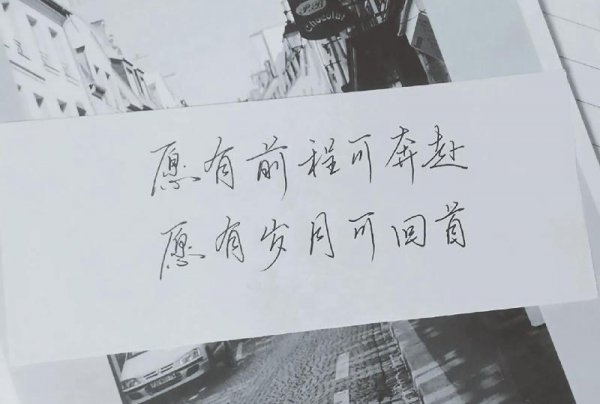 Chocolat
愿有前程可奔赴
愿有岁月可回首